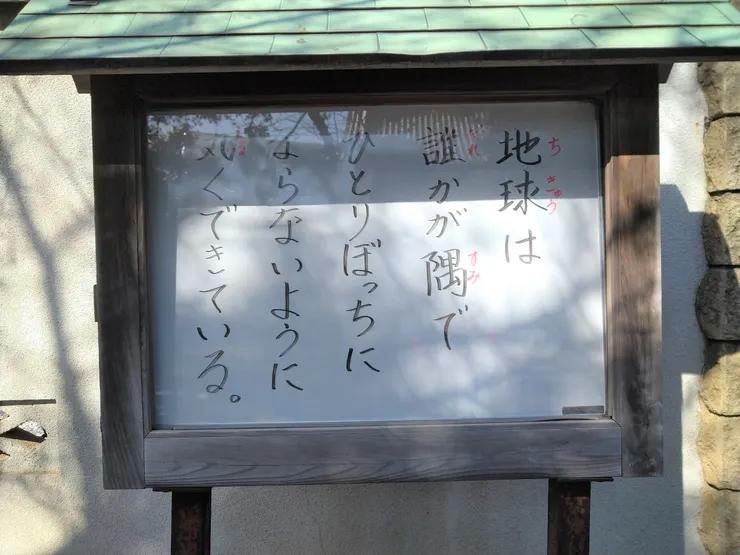 ちきゅう
地球は
だれ すみ
誰かが隅で
ひとりぼっちに
ならないように
丸くできている。